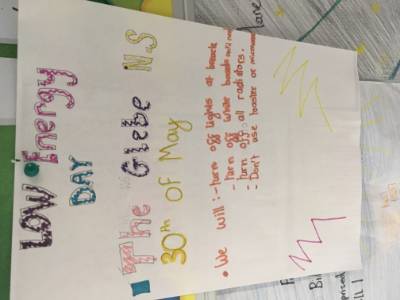 LOW Energy
DAY
The Glebe N.S
30th of May
• We will :- turn off lights at break
- turn off white boards
- turn off all radiators.
- Don't use toaster or microwave
lane